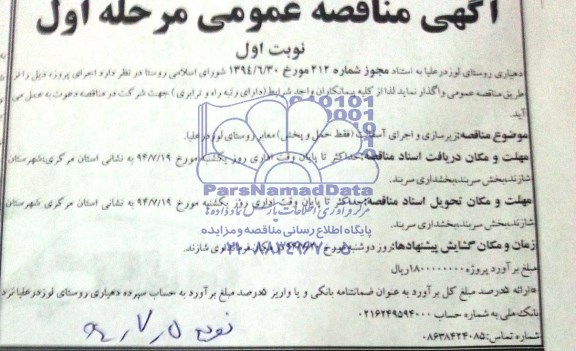 آگهی مناقصه عمومی مرحله اول
نوبت اول
دهیاری روستای لوزدرعلیا به استناد مجوز شماره ۲۱۲ مورخ ۱۳۹٤/٦/۳۰ شورای اسلامی روستا در نظر دارد اجرای پروژه ذیل را از
طریق مناقصه عمومی واگذار نماید لذا از کلیه پیمانکاران واجد شرایط (دارای رتبه راه و ترابری) جهت شرکت در مناقصه دعوت به عمل می
آید.
موضوع مناقصه: زیرسازی و اجرای آسفالت (فقط حمل و پخش) معابر روستای لوزدرعلیا.
مهلت و مکان دریافت اسناد مناقصه: حداکثر تا پایان وقت اداری روز یکشنبه مورخ ۹٤/۷/۱۹ به نشانی استان مرکزی، شهرستان
شازند، بخش سربند، بخشداری سربند.
مهلت و مکان تحویل اسناد مناقصه: حداکثر تا پایان وقت اداری روز یکشنبه مورخ ۹٤/۷/۱۹ به نشانی استان مرکزی شهرستان
شازند، بخش سربند، بخشداری سربند.
زمان و مکان گشایش پیشنهادها: روز دوشنبه مورخ شازند.
مبلغ برآورد پروژه ۱۸۰۰۰۰۰۰۰۰ ریال
*ارائه ۵درصد مبلغ کل برآورد به عنوان ضمانتنامه بانکی و یا واریز ۵درصد مبلغ برآورد به حساب سپرده دهیاری روستای لوزدرعلیا نزد
بانک ملی به شماره حساب ۰۲۱٦۲٤۹۵۹٤۰۰۰
شماره تماس: ۰۸٦۳۸٤۲٤۰۸۵
ParsNamadData
مرکز فرآوری اطلاعات پارس نماد داده ها
پایگاه اطلاع رسانی مناقصه و مزایده
۰۲۱-۸۸۳٤۹٦۷۰-۵
۹٤،۷،۵